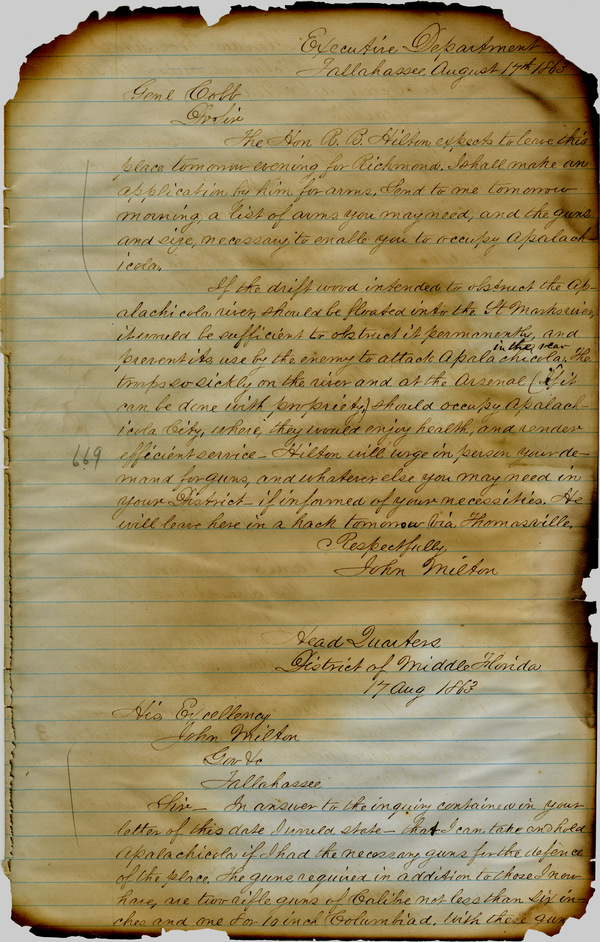 Executive Department
Tallahassee August 17th 1863
Genl Cobb
Dr Sir
The Hon R. B. Hilton expects to leave this
place tomorrow evening for Richmond. I shall make an
application by him for arms. Send to me tomorrow
morning, a list of arms you may need, and the guns
and size, necessary to enable you to occupy Apalach-
icola.
If the drift wood intended to obstruct the Ap-
alachicola river, should be floated into the St Marks river,
it would be sufficient to obstruct it permanently, and
in the rear
prevent its use by the enemy to attack Apalachicola. The
troops so sickly on the river and at the Arsenal (if it
can be done with propriety) should occupy Apalach-
icola City, where they would enjoy health, and render
669
efficient service – Hilton will urge in person your de-
mand for guns, and whatever else you may need in
your District – if informed of your necessities. He
will leave here in a hack tomorrow via Thomasville.
Respectfully,
John Milton
Head Quarters
District of Middle Florida
17 Aug 1863
His Excellency
John Milton
Gov &c
Tallahassee
Sir – In answer to the inquiry contained in your
letter of this date I would state – that I can take and hold
Apalachicola if I had the necessary guns for the defence
of the place. The guns required in addition to those I now
have, are two rifle guns of Calibre not less than six in-
ches and one 8 or 10 inch Columbiad. With these guns